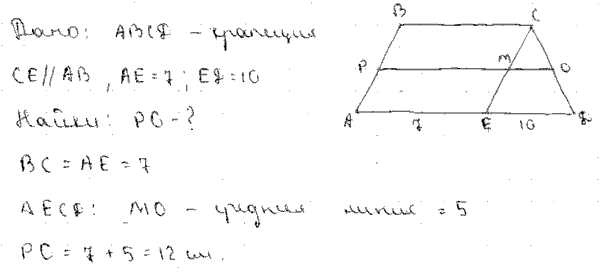 Дано: ABCД - трапеция
CE//AB, AE=7; EД=10
Найти: PO-?
BC = AE = 7
ΔECД: MO - средняя линия = 5
PO = 7 + 5 = 12 см.
B C
P M O
A 7 E 10 Д